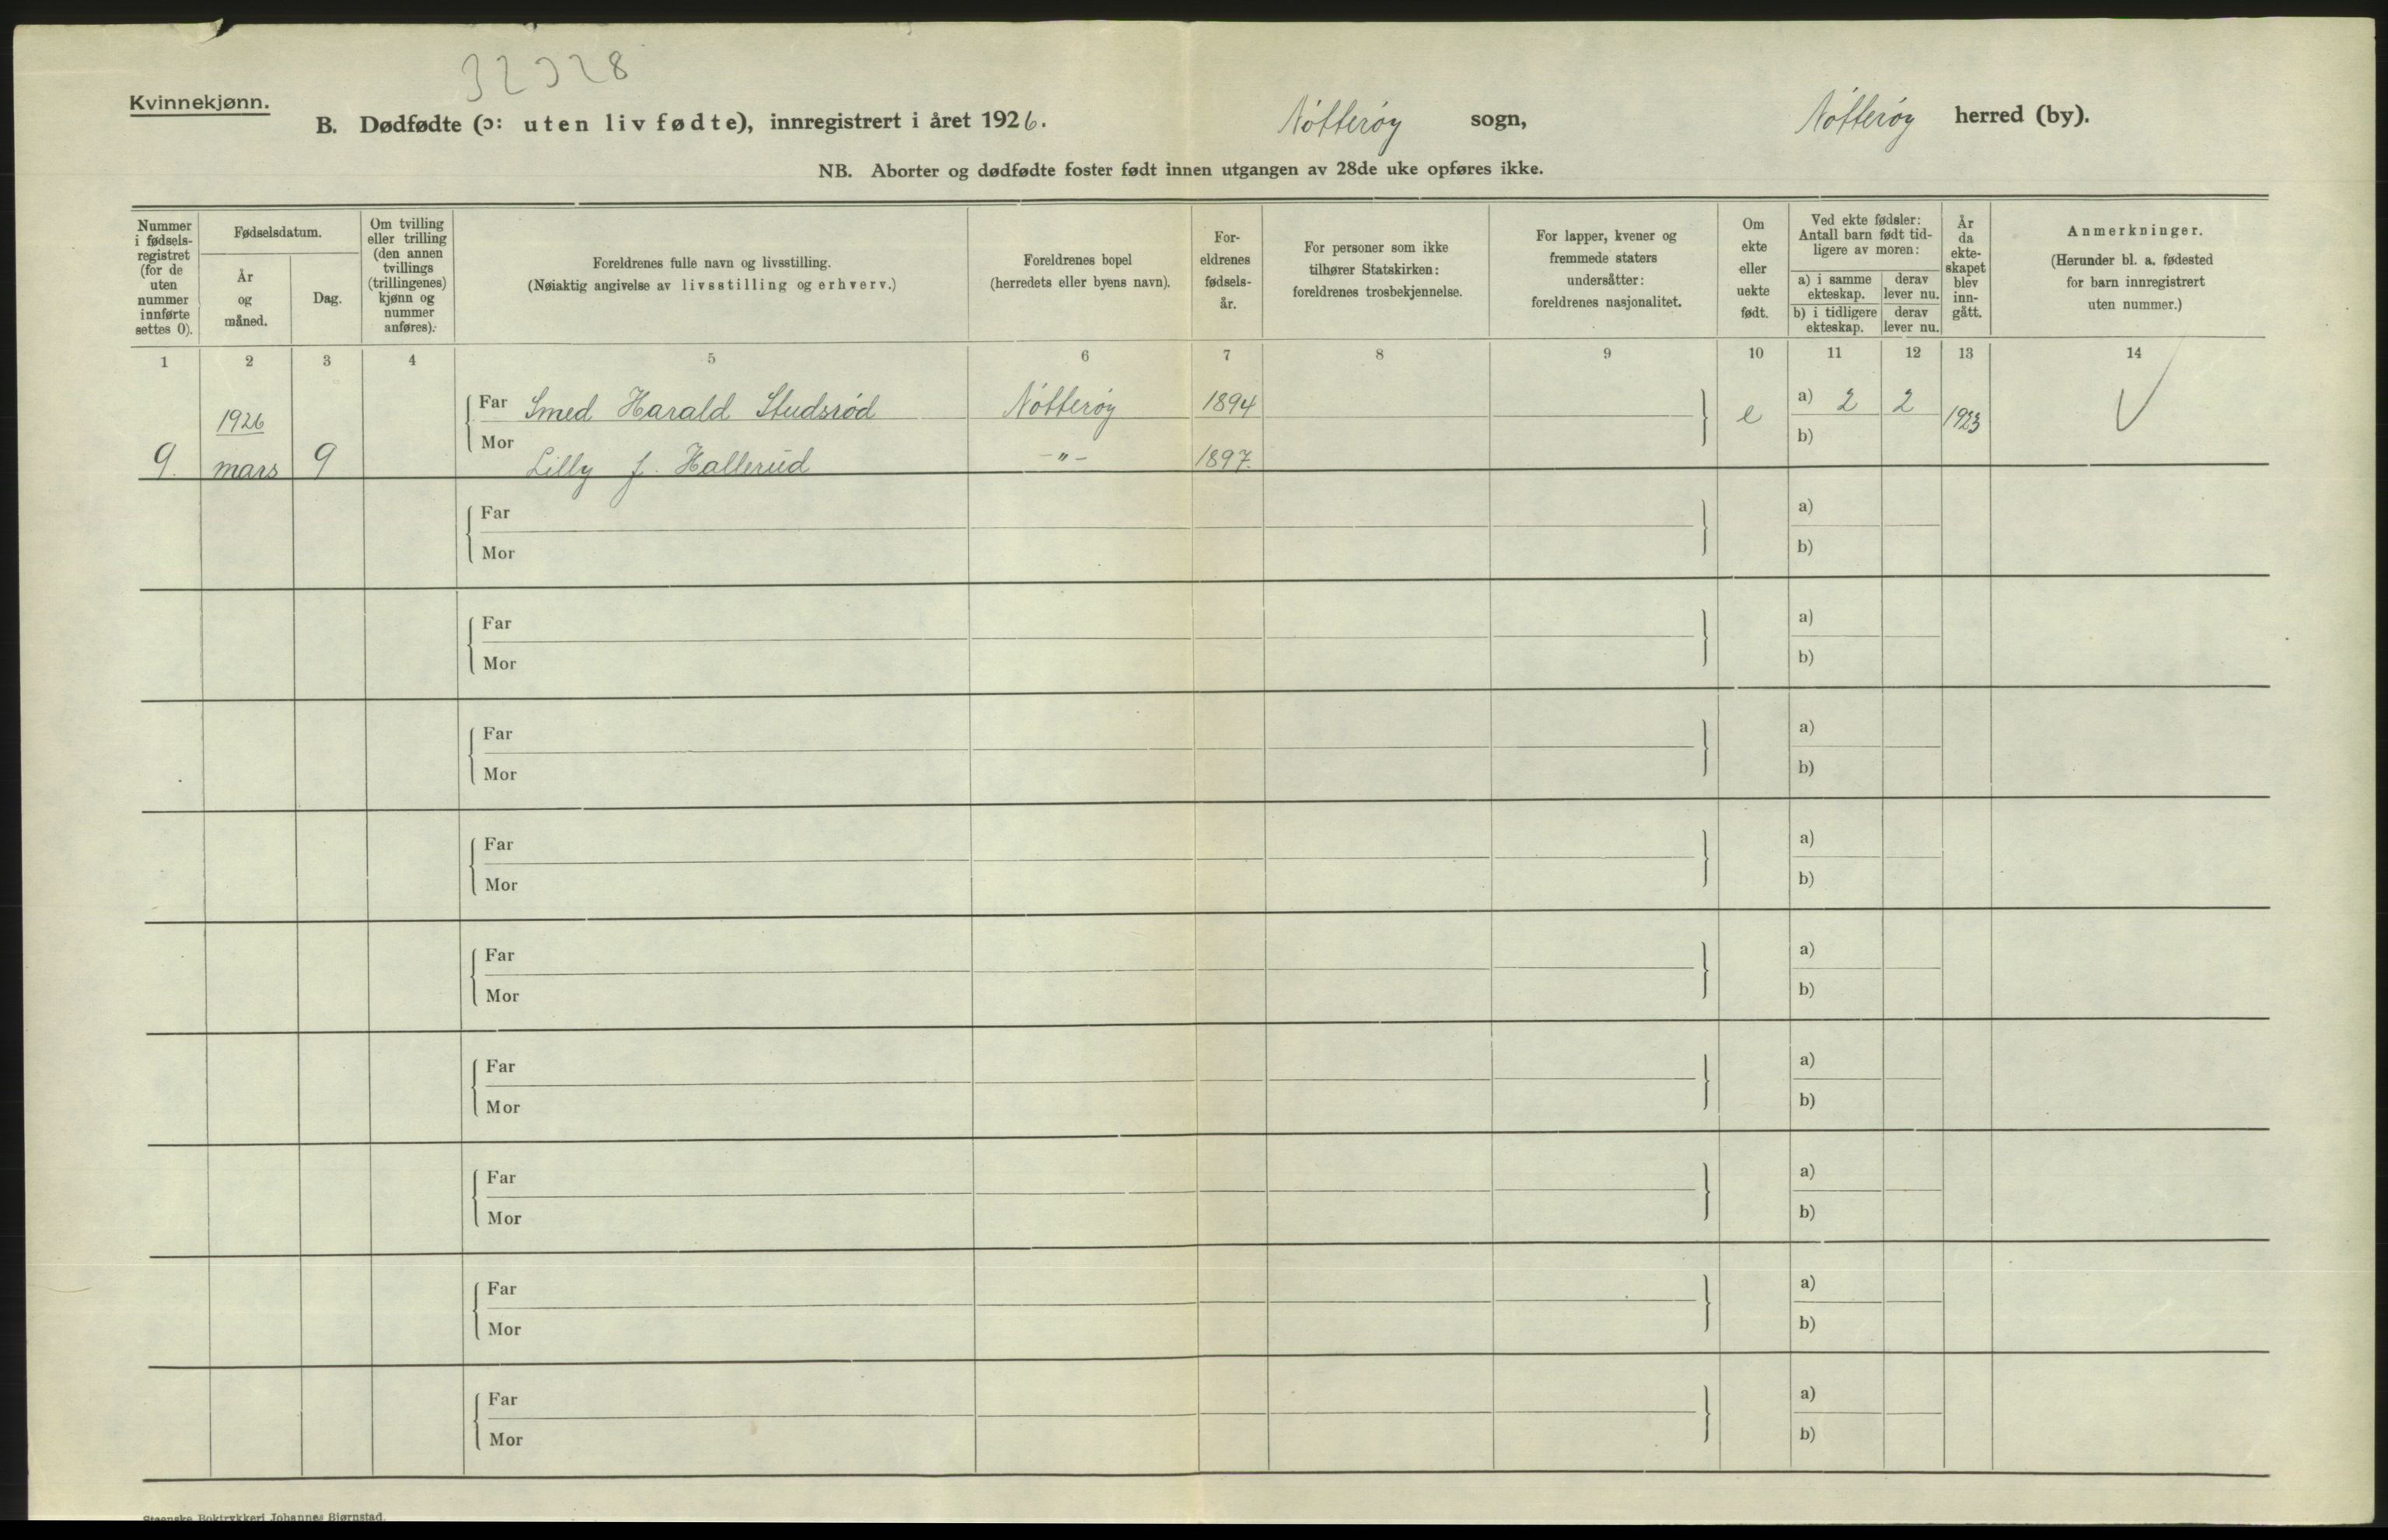 32328
Kvinnekjønn.
B. Dødfødte (ɔ: uten liv fødte), innregistrert i året 1926. Nötteröy sogn, Nötteröy herred (by).
NB. Aborter og dødfødte foster født innen utgangen av 28de uke opføres ikke.
Nummer
i fødsels-
registret
(for de
uten
nummer
innførte
settes 0).
Fødselsdatum.
År
og
måned.
Dag.
Om tvilling
eller trilling
(den annen
tvillings
(trillingenes)
kjønn og
nummer
anføres).
Foreldrenes fulle navn og livsstilling.
(Nøiaktig angivelse av livsstilling og erhverv.)
Foreldrenes bopel
(herredets eller byens navn).
For-
eldrenes
fødsels-
år.
For personer som ikke
tilhører Statskirken:
foreldrenes trosbekjennelse.
For lapper, kvener og
fremmede staters
undersåtter:
foreldrenes nasjonalitet.
Om
ekte
eller
uekte
født.
Ved ekte fødsler:
Antall barn født tid-
ligere av moren:
a) i samme
ekteskap.
derav
lever nu.
b) i tidligere
ekteskap.
derav
lever nu.
År
da
ekte-
skapet
blev
inn-
gått.
Anmerkninger.
(Herunder bl. a. fødested
for barn innregistrert
uten nummer.)
1 2 3 4 5 6 7 8 9 10 11 12 13 14
Far Smed Harald Studsrød Nötteröy 1894 e a) 2 2 1923
1926
Mor b)
9. mars 9 Lilly f. Hallerud -"- 1897.
Far a)
Mor b)
Far a)
Mor b)
Far a)
Mor b)
Far a)
Mor b)
Far a)
Mor b)
Far a)
Mor b)
Far a)
Mor b)
Far a)
Mor b)
Far a)
Mor b)
Steenske Boktrykkeri Johannes Bjørnstad.